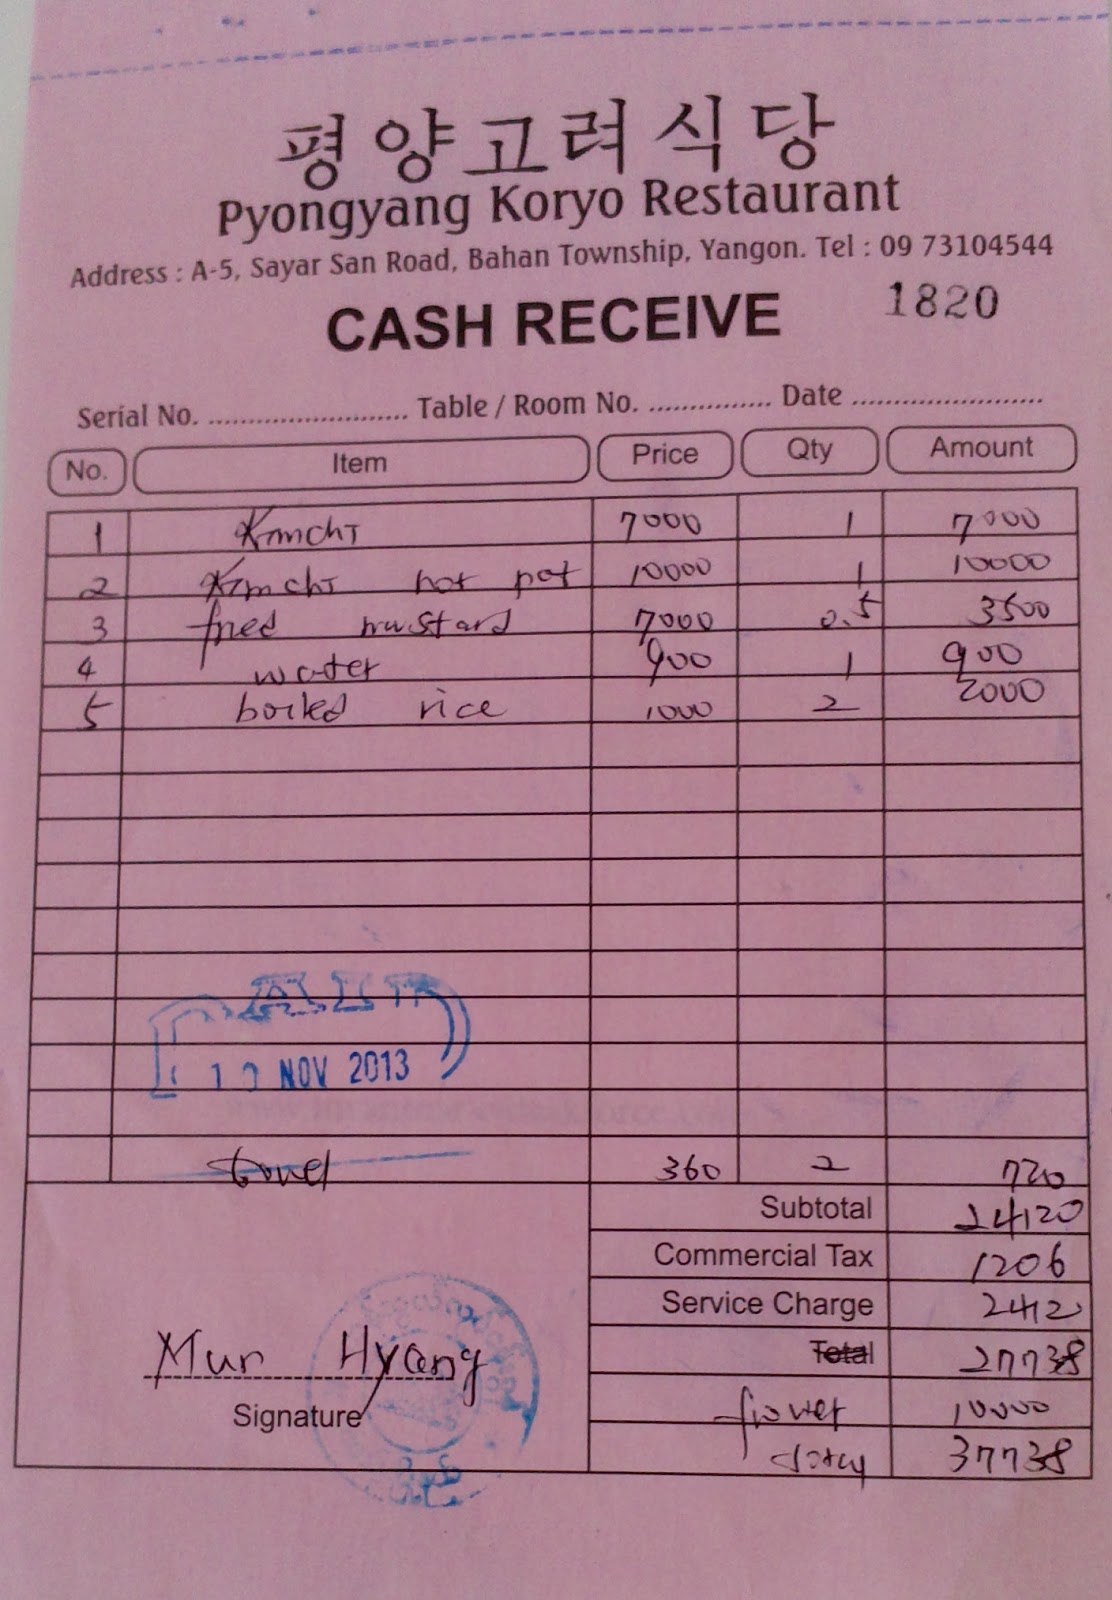 평양고려식당
Pyongyang Koryo Restaurant
Address : A-5, Sayar San Road, Bahan Township, Yangon. Tel : 09 73104544
CASH RECEIVE 1820
Serial No. ........................ Table / Room No. ............... Date .......................
No. Item Price Qty Amount
1 Kimchi 7000 1 7000
2 Kimchi hot pot 10000 1 10000
3 fried mustard 7000 0.5 3500
4 water 900 1 900
5 boiled rice 1000 2 2000
NOV 2013
towel 360 2 720
Subtotal 24120
Commercial Tax 1206
Service Charge 2412
Total 27738
flower 10000
37738
Mun Hyang
Signature